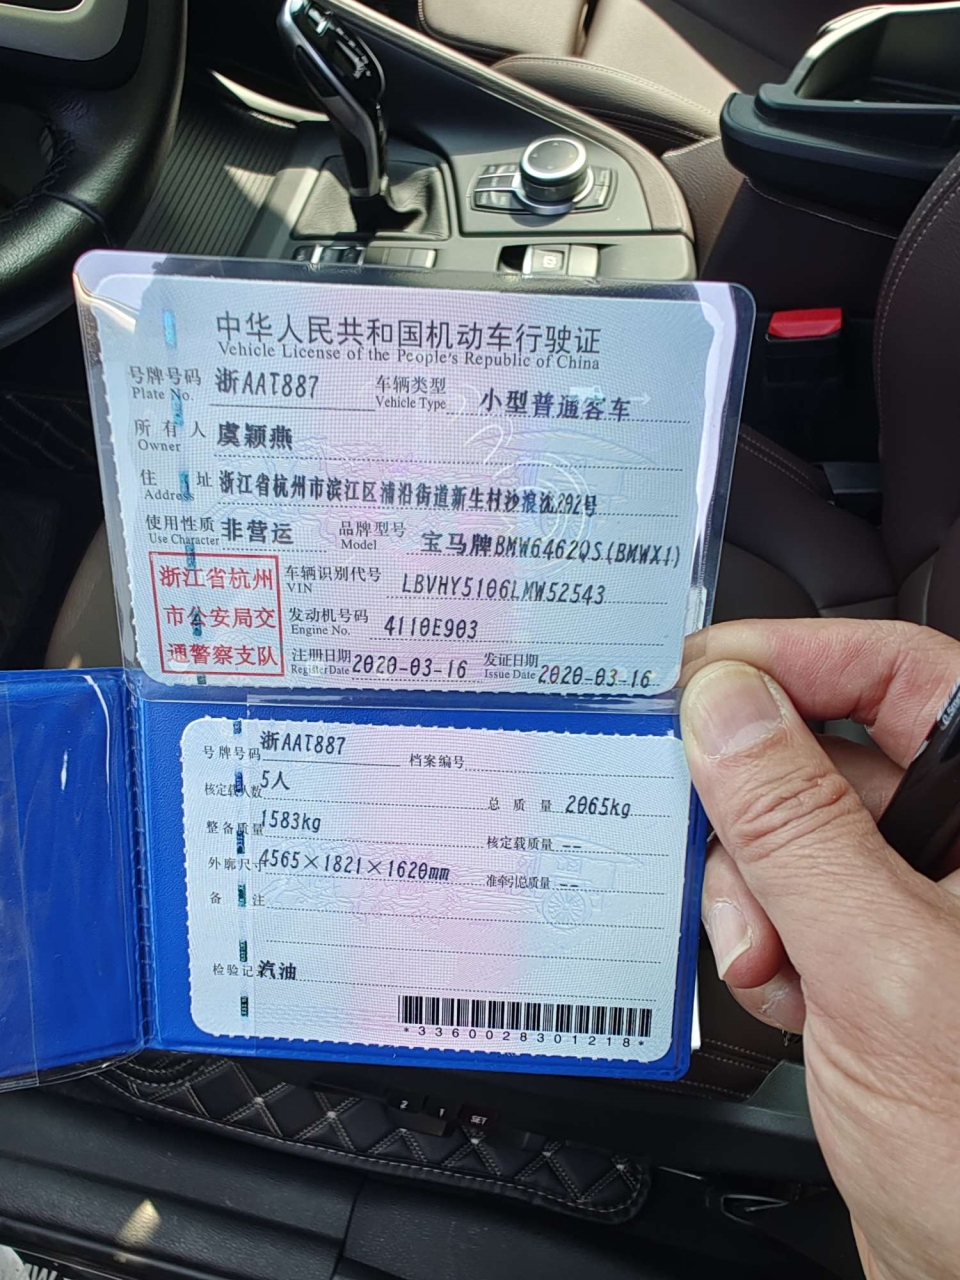 中华人民共和国机动车行驶证
Vehicle License of the People's Republic of China
号牌号码 浙AAT887 车辆类型 小型普通客车
Plate No. Vehicle Type
所有人 虞颖燕
Owner
住址 浙江省杭州市滨江区浦沿街道新生村沙浪沈292号
Address
使用性质 非营运 品牌型号 宝马牌BMW6462QS(BMWX1)
Use Character Model
浙江省杭州
市公安局交
通警察支队
车辆识别代号 LBVHY5106LMW52543
VIN
发动机号码 4110E903
Engine No.
注册日期 2020-03-16 发证日期 2020-03-16
Register Date Issue Date
号牌号码 浙AAT887 档案编号
核定载人数 5人 总质量 2065kg
整备质量 1583kg 核定载质量 --
外廓尺寸 4565×1821×1620mm 准牵引总质量 --
备注
检验记录 汽油
*3360028301218*
2 1 SET